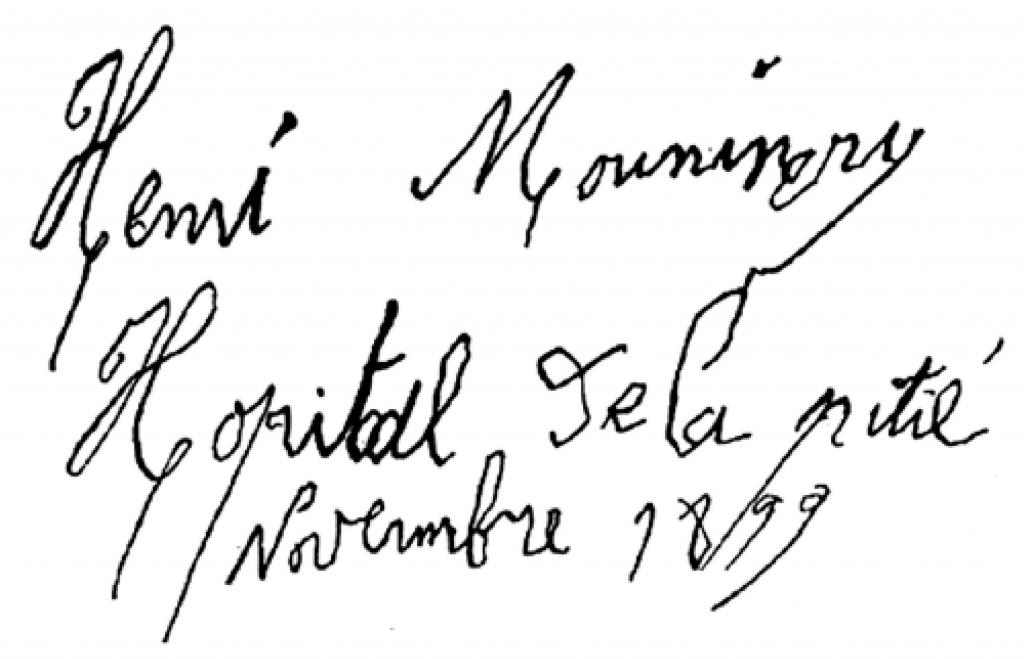 Henri
Hopital de la pitié
Novembre 1899